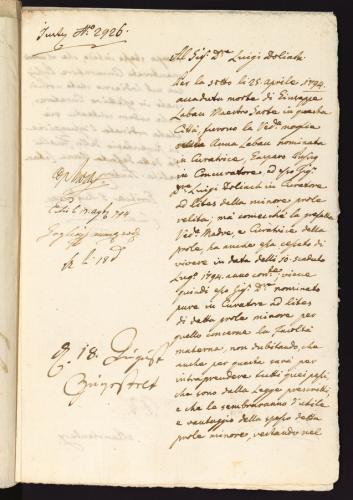 N.º 2926.
Al Sig.r D.r Luigi Doliach
Per la sotto li 25 aprile 1794.
accaduta morte di Giuseppe
Labau Maestro Sarto in questa
Città, furono la Ved.a moglie
Anna Labau nominata
in Curatrice, Gasparo
in Concuratore, ed esso Sig.r
D.r Luigi Doliach in Curatore
ad lites della minore prole
relita; ma comecchè la prefata
Ved.a Madre, e Curatrice della
prole, ha anche essa cessato di
vivere in data delli 10. scaduto
Lug.o 1794. anno corr.te; viene
quindi esso Sig.r D.r nominato
pure in Curatore ad lites
di detta prole minore per
quello concerne la facoltà
materna, non dubitando, che
anche per questa sarà per
intraprendere tutti quei passi,
che sono dalla Legge prescritti,
e che le sembreranno d'utile
e vantaggio della spesso detta
prole minore, restando nel
18. August